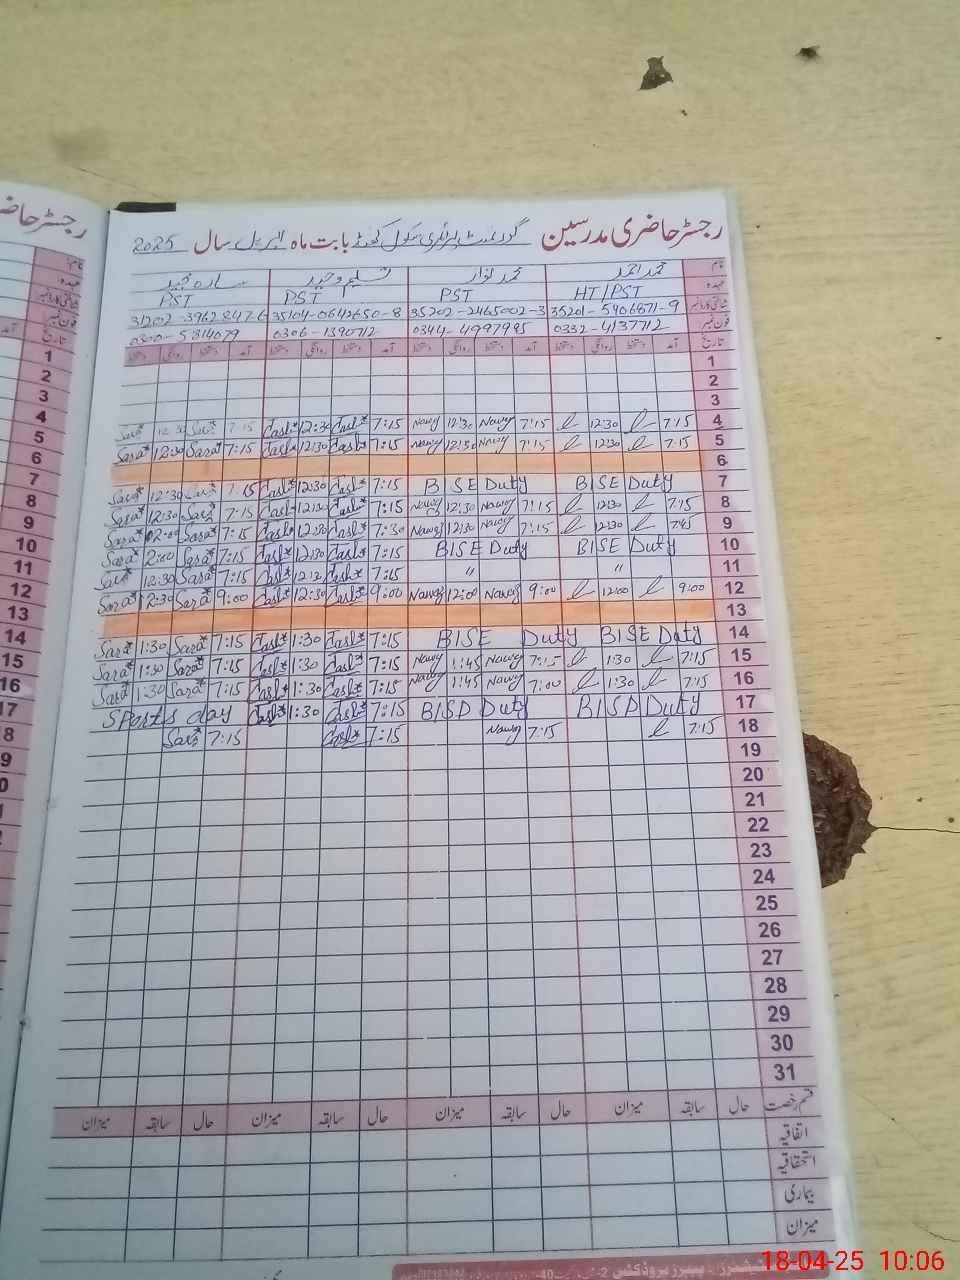 رجسٹر حاضری مدرسین گورنمنٹ پرائمری سکول بابت ماہ اپریل سال 2025
رجسٹر حاضری
نام محمد احمد محمد نواز تسلیم وحید سارہ مجید
عہدہ HT/PST PST PST PST
شناختی کارڈ نمبر 35201-5906871-9 35202-2465002-3 35104-0642650-8 31202-3962847-6
فون نمبر 0332-4137712 0344-4997995 0306-1390712 0300-5814079
تاریخ آمد دستخط روانگی دستخط آمد دستخط روانگی دستخط آمد دستخط روانگی دستخط آمد دستخط روانگی دستخط
1
2
3
4 7:15 12:30 7:15 Nawaz 12:30 Nawaz 7:15 12:30 7:15 Sara 12:30 Sara
5 7:15 12:30 7:15 Nawaz 12:30 Nawaz 7:15 12:30 7:15 Sara 12:30 Sara
6
7 BISE Duty BISE Duty 7:15 12:30 7:15 Sara 12:30 Sara
8 7:15 12:30 7:15 Nawaz 12:30 Nawaz 7:15 12:30 7:15 Sara 12:30 Sara
9 7:45 12:30 7:15 Nawaz 12:30 Nawaz 7:30 12:30 7:15 Sara 02:00 Sara
10 BISE Duty BISE Duty 7:15 12:30 7:15 Sara 2:00 Sara
11 〃 〃 7:15 7:15 Sara 12:30 Sara
12 9:00 12:00 9:00 Nawaz 12:00 Nawaz 9:00 12:30 9:00 Sara 12:30 Sara
13
14 BISE Duty BISE Duty 7:15 1:30 7:15 Sara 1:30 Sara
15 7:15 1:30 7:15 Nawaz 1:45 Nawaz 7:15 1:30 7:15 Sara 1:30 Sara
16 7:15 1:30 7:00 Nawaz 1:45 Nawaz 7:15 1:30 7:15 Sara 1:30 Sara
17 BISP Duty BISP Duty 7:15 1:30 Sports day
18 7:15 7:15 Nawaz 7:15 7:15 Sara
19
20
21
22
23
24
25
26
27
28
29
30
31
قسم رخصت حال سابقہ میزان حال سابقہ میزان حال سابقہ میزان حال سابقہ میزان
اتفاقیہ
استحقاقیہ
بیماری
میزان
18-04-25 10:06